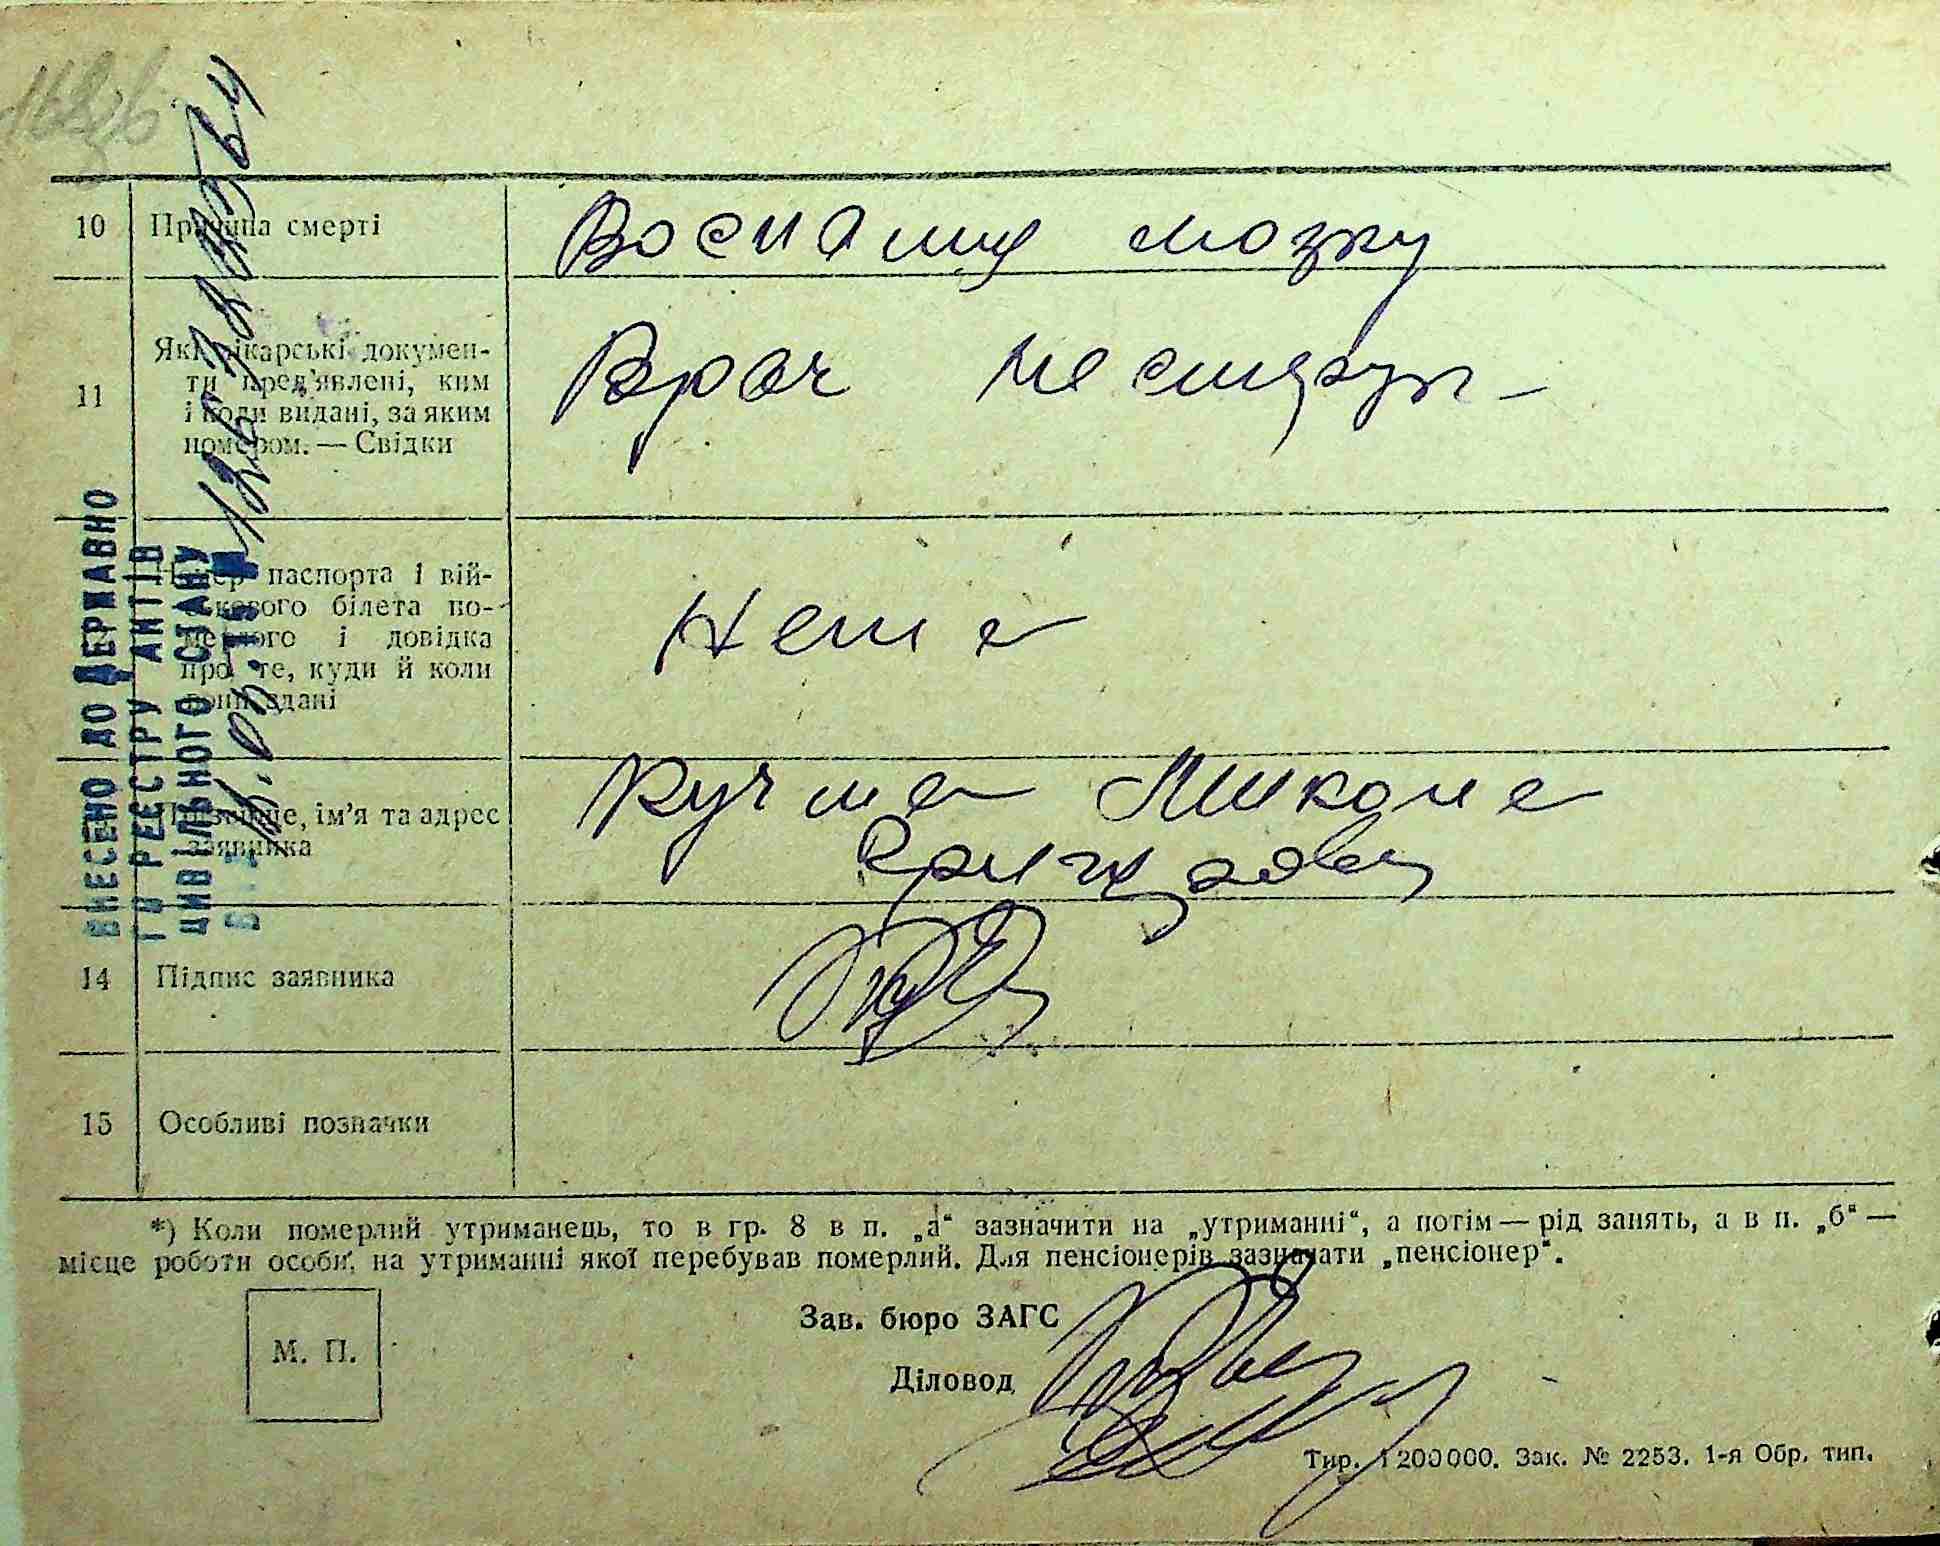 10 Причина смерті
Воспал мозку
11 Які лікарські докумен-
ти пред'явлені, ким
і коли видані, за яким
номером. — Свідки
Врач
12 Номер паспорта і вій-
ськового білета по-
мерлого і довідка
про те, куди й коли
вони здані
Нема
Прізвище, ім'я та адрес
заявника
Кучма Микола
14 Підпис заявника
15 Особливі позначки
*) Коли померлий утриманець, то в гр. 8 в п. „а“ зазначити на „утриманні“, а потім — рід занять, а в п. „б“ —
місце роботи особи, на утриманні якої перебував померлий. Для пенсіонерів зазначати „пенсіонер“.
М. П.
Зав. бюро ЗАГС
Діловод
Тир. 1 200000. Зак. № 2253. 1-я Обр. тип.
ВНЕСЕНО ДО ДЕРЖАВНО
ГО РЕЄСТРУ АКТІВ
ЦИВІЛЬНОГО СТАНУ